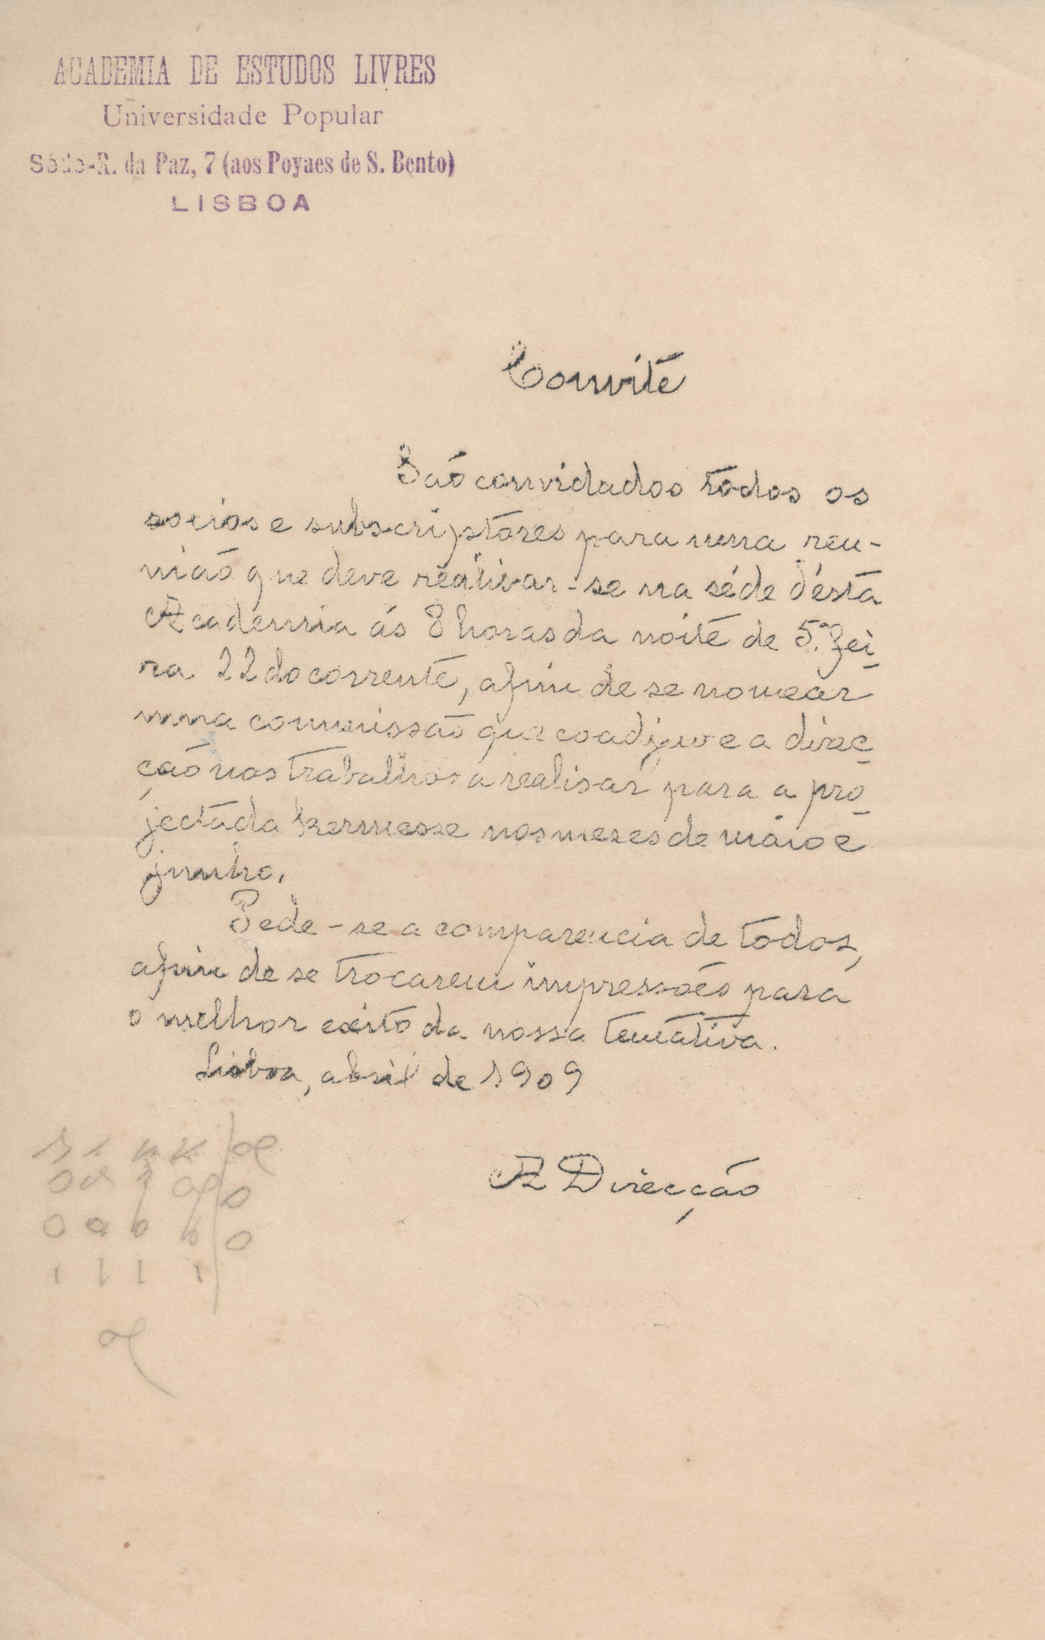 ACADEMIA DE ESTUDOS LIVRES
Universidade Popular
Séde-R. da Paz, 7 (aos Poyaes de S. Bento)
LISBOA
Convite
São convidados todos os
socios e subscriptores para uma reu-
nião que deve realisar-se na séde d'ésta
Academia ás 8 horas da noite de 5.ª fei-
ra 22 do corrente, afim de se nomear
uma commissão que coadjuve a direc-
ção nos trabalhos a realisar para a pro-
jectada kermesse nos mezes de maio e
junho.
Pede-se a comparencia de todos,
afim de se trocarem impressões para
o melhor exito da nossa tentativa.
Lisboa, abril de 1909
A Direcção